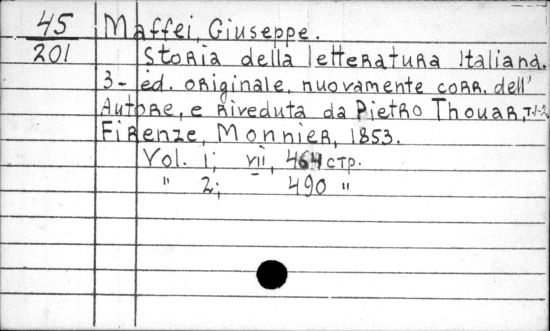 45 Maffei, Giuseppe.
201 Storia della letteratura Italiana.
3- ed. originale, nuovamente corr. dell'
Autore, e riveduta da Pietro Thouar, T.1-2.
Firenze, Monnier, 1853.
Vol. 1; VII, 464 стр.
" 2; 490 "